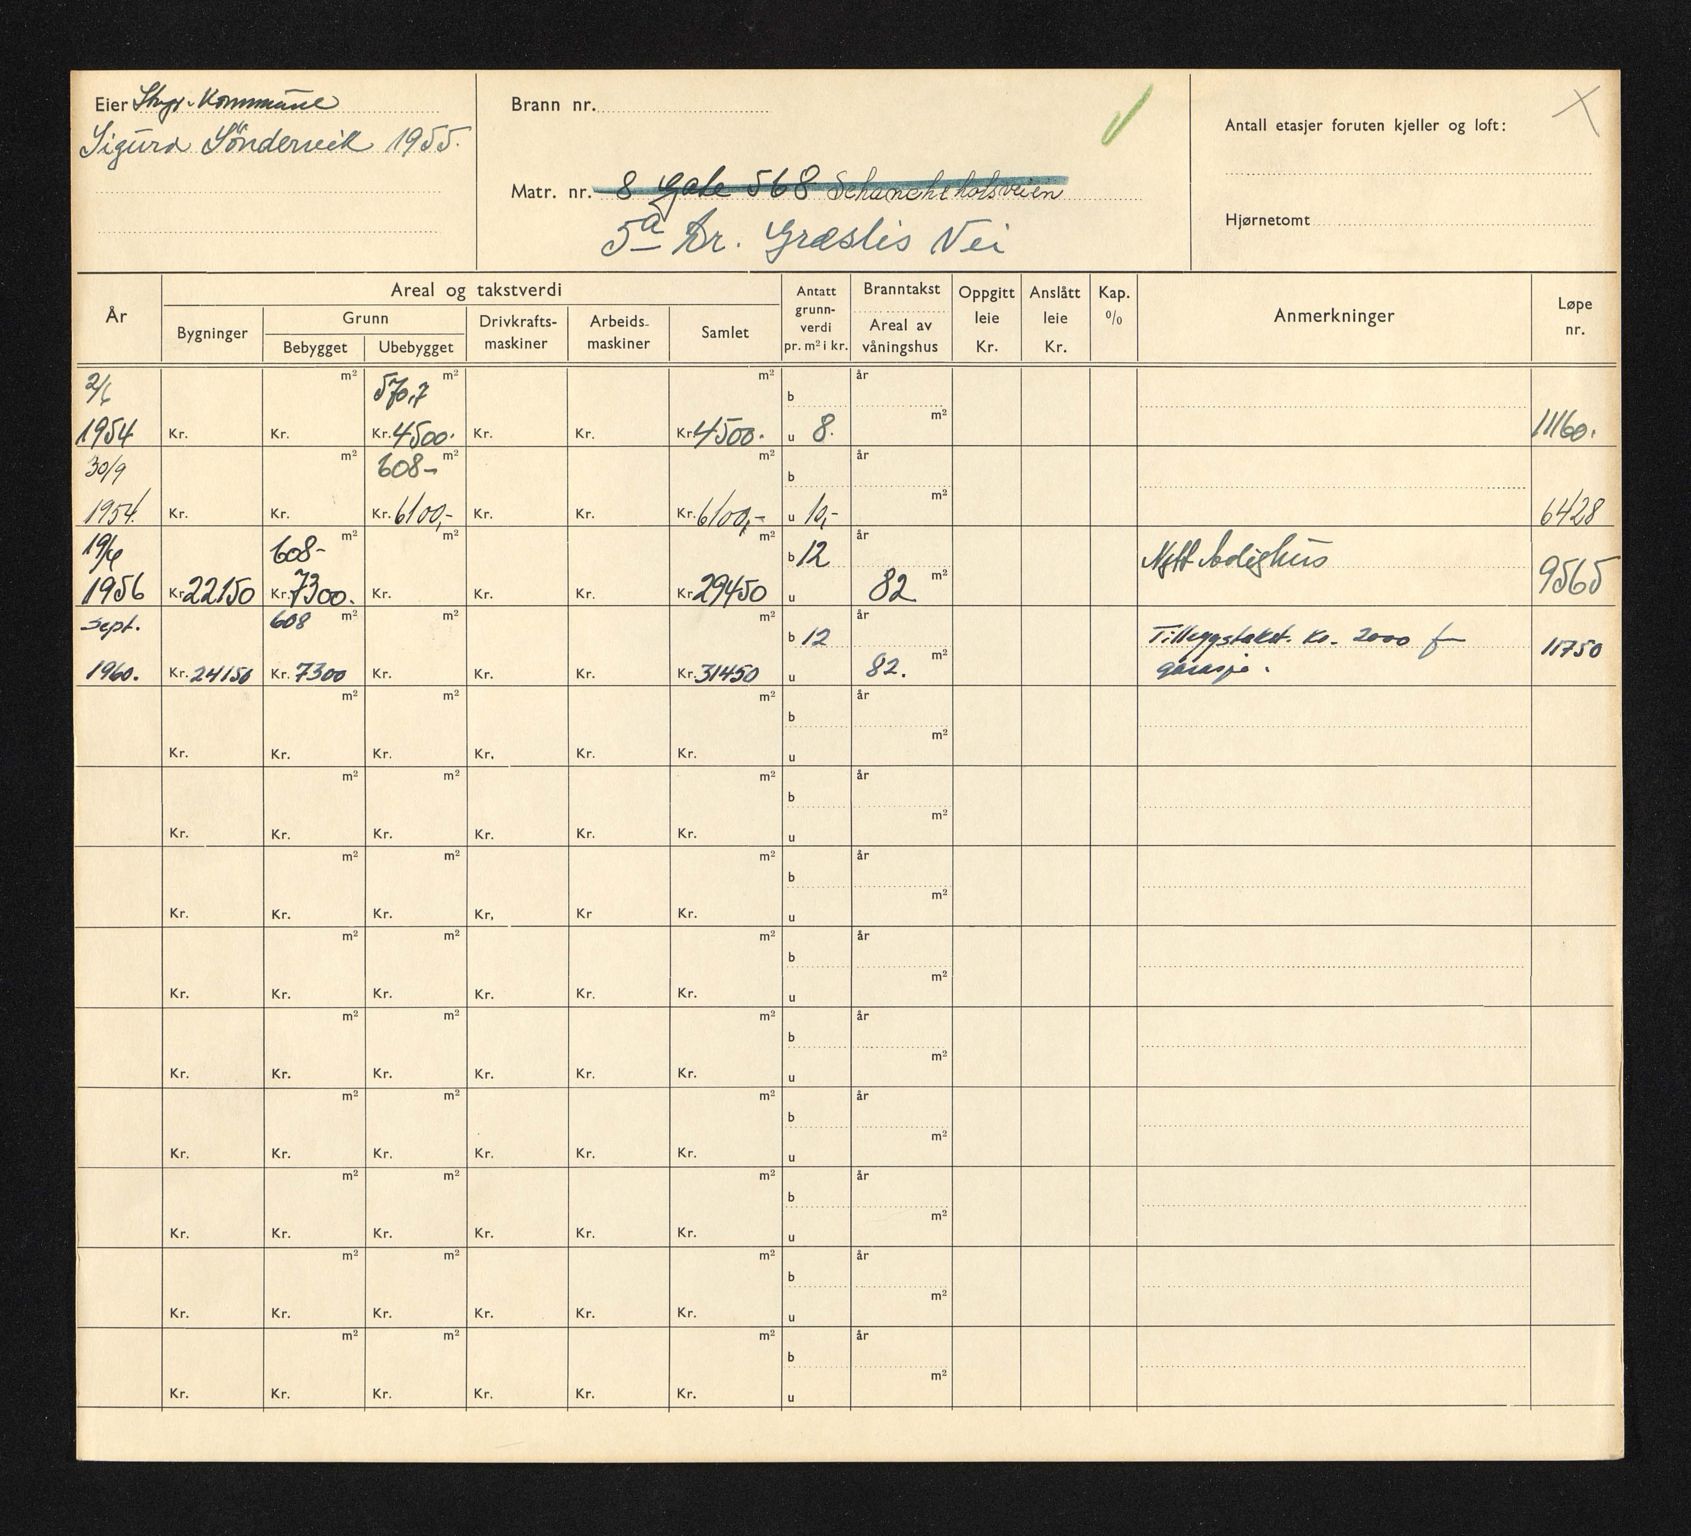 Eier Stvgr. Kommune
Sigurd Söndervik 1955.
Brann nr.
Matr. nr. 8 Gate 568 Schancheholsveien
5a Dr. Græslis Vei
Antall etasjer foruten kjeller og loft:
Hjørnetomt
År
Areal og takstverdi
Bygninger
Grunn
Bebygget
Ubebygget
Drivkrafts-
maskiner
Arbeids-
maskiner
Samlet
Antatt
grunn-
verdi
pr. m² i kr.
Branntakst
Areal av
våningshus
Oppgitt
leie
Kr.
Anslått
leie
Kr.
Kap.
%
Anmerkninger
Løpe
nr.
2/6 m² 570,7 m² m² b år
1954 Kr. Kr. Kr. 4500. Kr. Kr. Kr. 4500. u 8. m² 11160.
30/9 m² 608- m² m² b år
1954. Kr. Kr. Kr. 6100,- Kr. Kr. Kr. 6100,- u 10,- m² 6428
19/4 608- m² m² m² b 12 år Nytt bolighus
1956 Kr. 22150 Kr. 7300. Kr. Kr. Kr. Kr. 29450 u 82 m² 9565
Sept. 608 m² m² m² b 12 år Tilleggstakst. Kr. 2000 f
1960. Kr. 24150 Kr. 7300 Kr. Kr. Kr. Kr. 31450 u 82. m² garasje. 11750
m² m² m² b år
Kr. Kr. Kr. Kr. Kr. Kr. u m²
m² m² m² b år
Kr. Kr. Kr. Kr. Kr. Kr. u m²
m² m² m² b år
Kr. Kr. Kr. Kr, Kr Kr. u m²
m² m² m² b år
Kr. Kr. Kr. Kr. Kr. Kr. u m²
m² m² m² b år
Kr. Kr. Kr. Kr. Kr. Kr. u m²
m² m² m² b år
Kr. Kr. Kr. Kr. Kr. Kr. u m²
m² m² m² b år
Kr. Kr. Kr. Kr. Kr. Kr. u m²
m² m² m² b år
Kr. Kr. Kr. Kr. Kr. Kr. u m²
m² m² m² b år
Kr. Kr. Kr. Kr. Kr. Kr. u m²